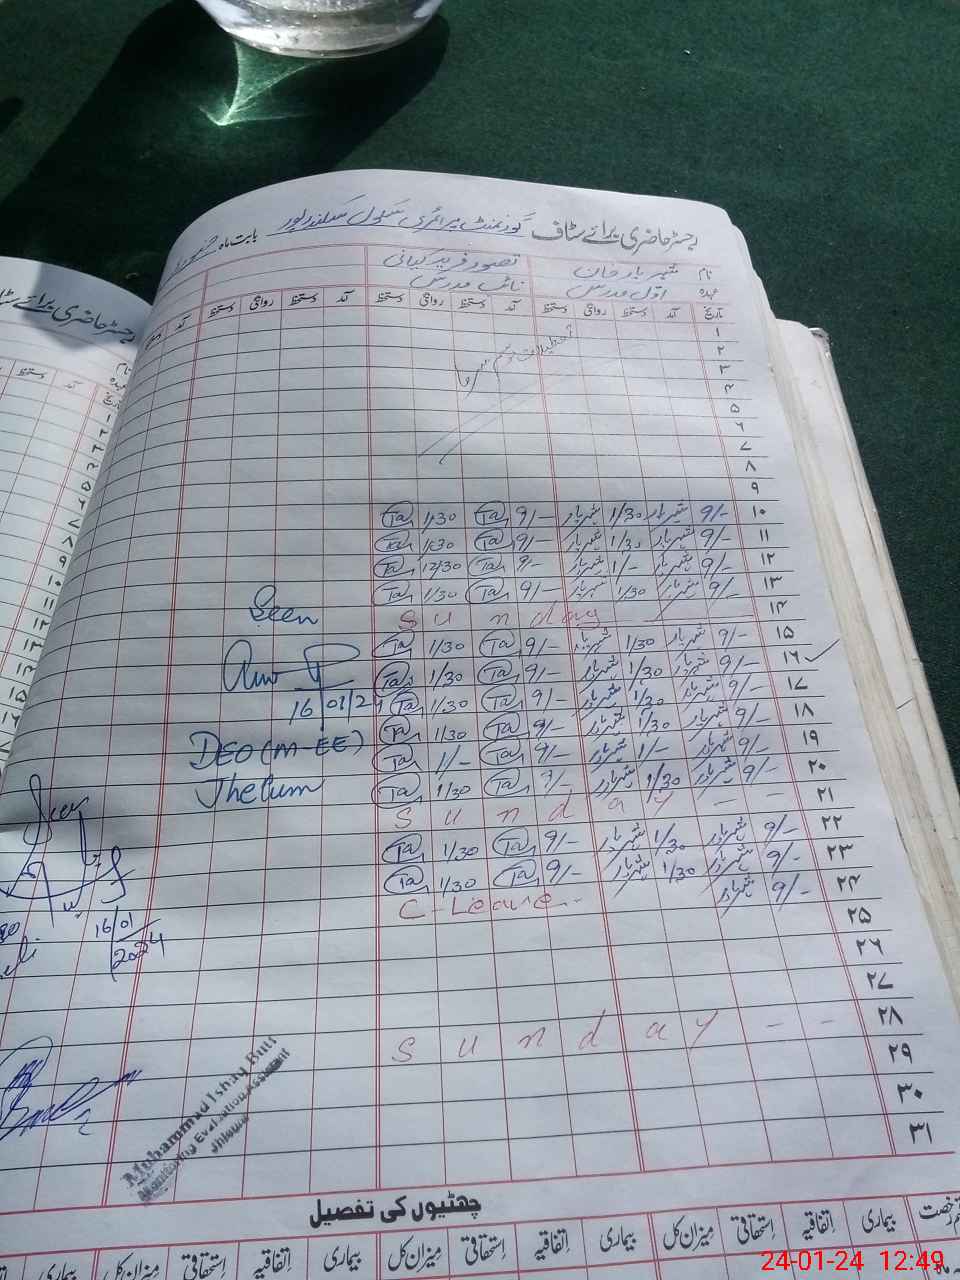 رجسٹر حاضری برائے سٹاف گورنمنٹ پرائمری سکول سکندرپور بابت ماہ جنوری
نام شہریار خان تصور فرید کیانی
عہدہ اول مدرس نائب مدرس
تاریخ آمد دستخط روانگی دستخط آمد دستخط روانگی دستخط آمد دستخط روانگی دستخط آمد
۱ تعطیلات موسم سرما
۲
۳
۴
۵
۶
۷
۸
۹
۱۰ 9/- شہریار 1/30 شہریار 9/- Ta 1/30 Ta
۱۱ 9/- شہریار 1/30 شہریار 9/- Ta 1/30 Ta
۱۲ 9/- شہریار 1/- شہریار 9/- Ta 12/30 Ta
۱۳ 9/- شہریار 1/30 شہریار 9/- Ta 1/30 Ta
۱۴ Sunday
۱۵ 9/- شہریار 1/30 شہریار 9/- Ta 1/30 Ta
۱۶ 9/- شہریار 1/30 شہریار 9/- Ta 1/30 Ta
۱۷ 9/- شہریار 1/30 شہریار 9/- Ta 1/30 Ta
۱۸ 9/- شہریار 1/30 شہریار 9/- Ta 1/30 Ta
۱۹ 9/- شہریار 1/- شہریار 9/- Ta 1/- Ta
۲۰ 9/- شہریار 1/30 شہریار 9/- Ta 1/30 Ta
۲۱ Sunday - -
۲۲ 9/- شہریار 1/30 شہریار 9/- Ta 1/30 Ta
۲۳ 9/- شہریار 1/30 شہریار 9/- Ta 1/30 Ta
۲۴ 9/- شہریار C-Leave-
۲۵
۲۶
۲۷
۲۸ Sunday - -
۲۹
۳۰
۳۱
Seen
16/01/24
DEO (M-EE)
Jhelum
Seen
16/01/2024
Muhammad Ishaq Butt
Monitoring Evaluation Assistant
Jhelum
چھٹیوں کی تفصیل
قسم رخصت بیماری اتفاقیہ استحقاقی میزان کل بیماری اتفاقیہ استحقاقی میزان کل بیماری اتفاقیہ استحقاقی میزان کل بیماری
24-01-24 12:49